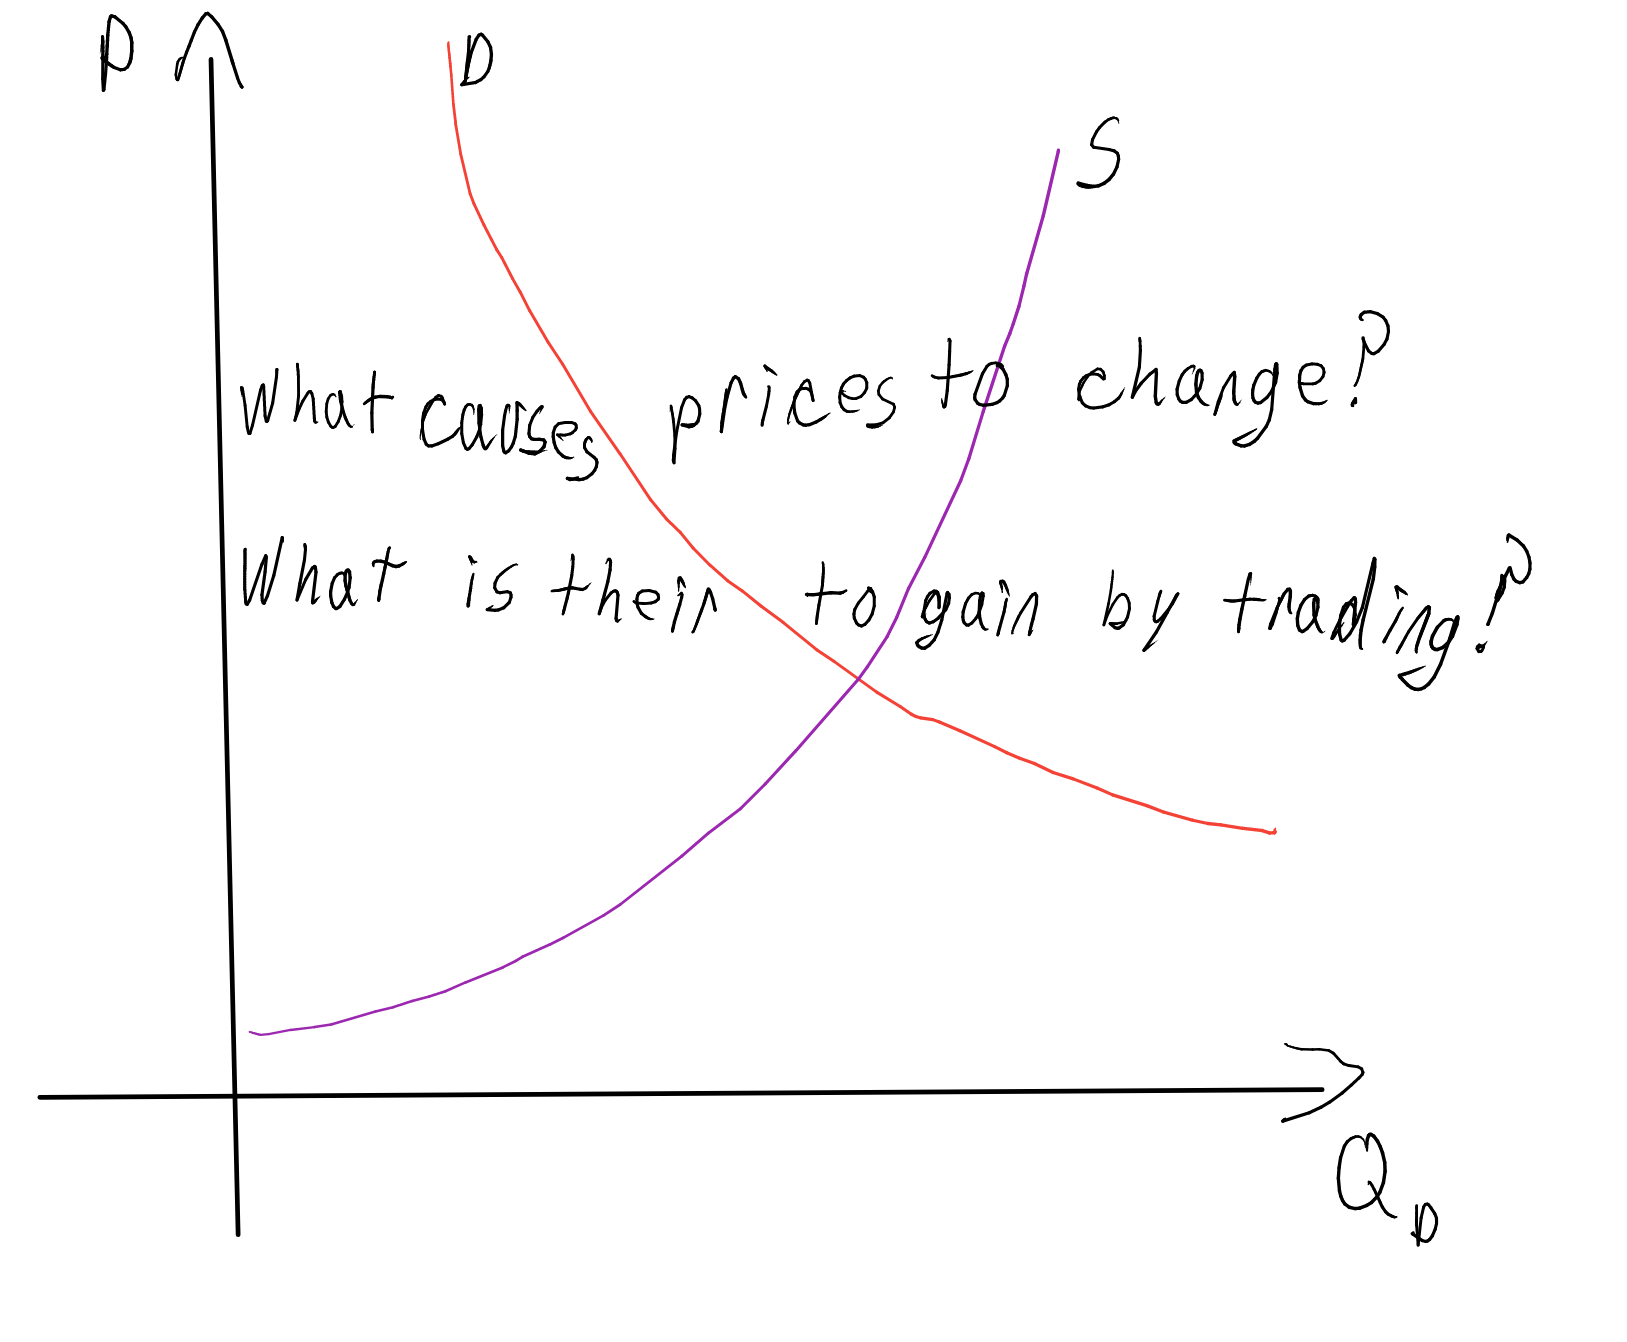 P
D
S
What causes prices to change?
What is their to gain by trading?
Q D